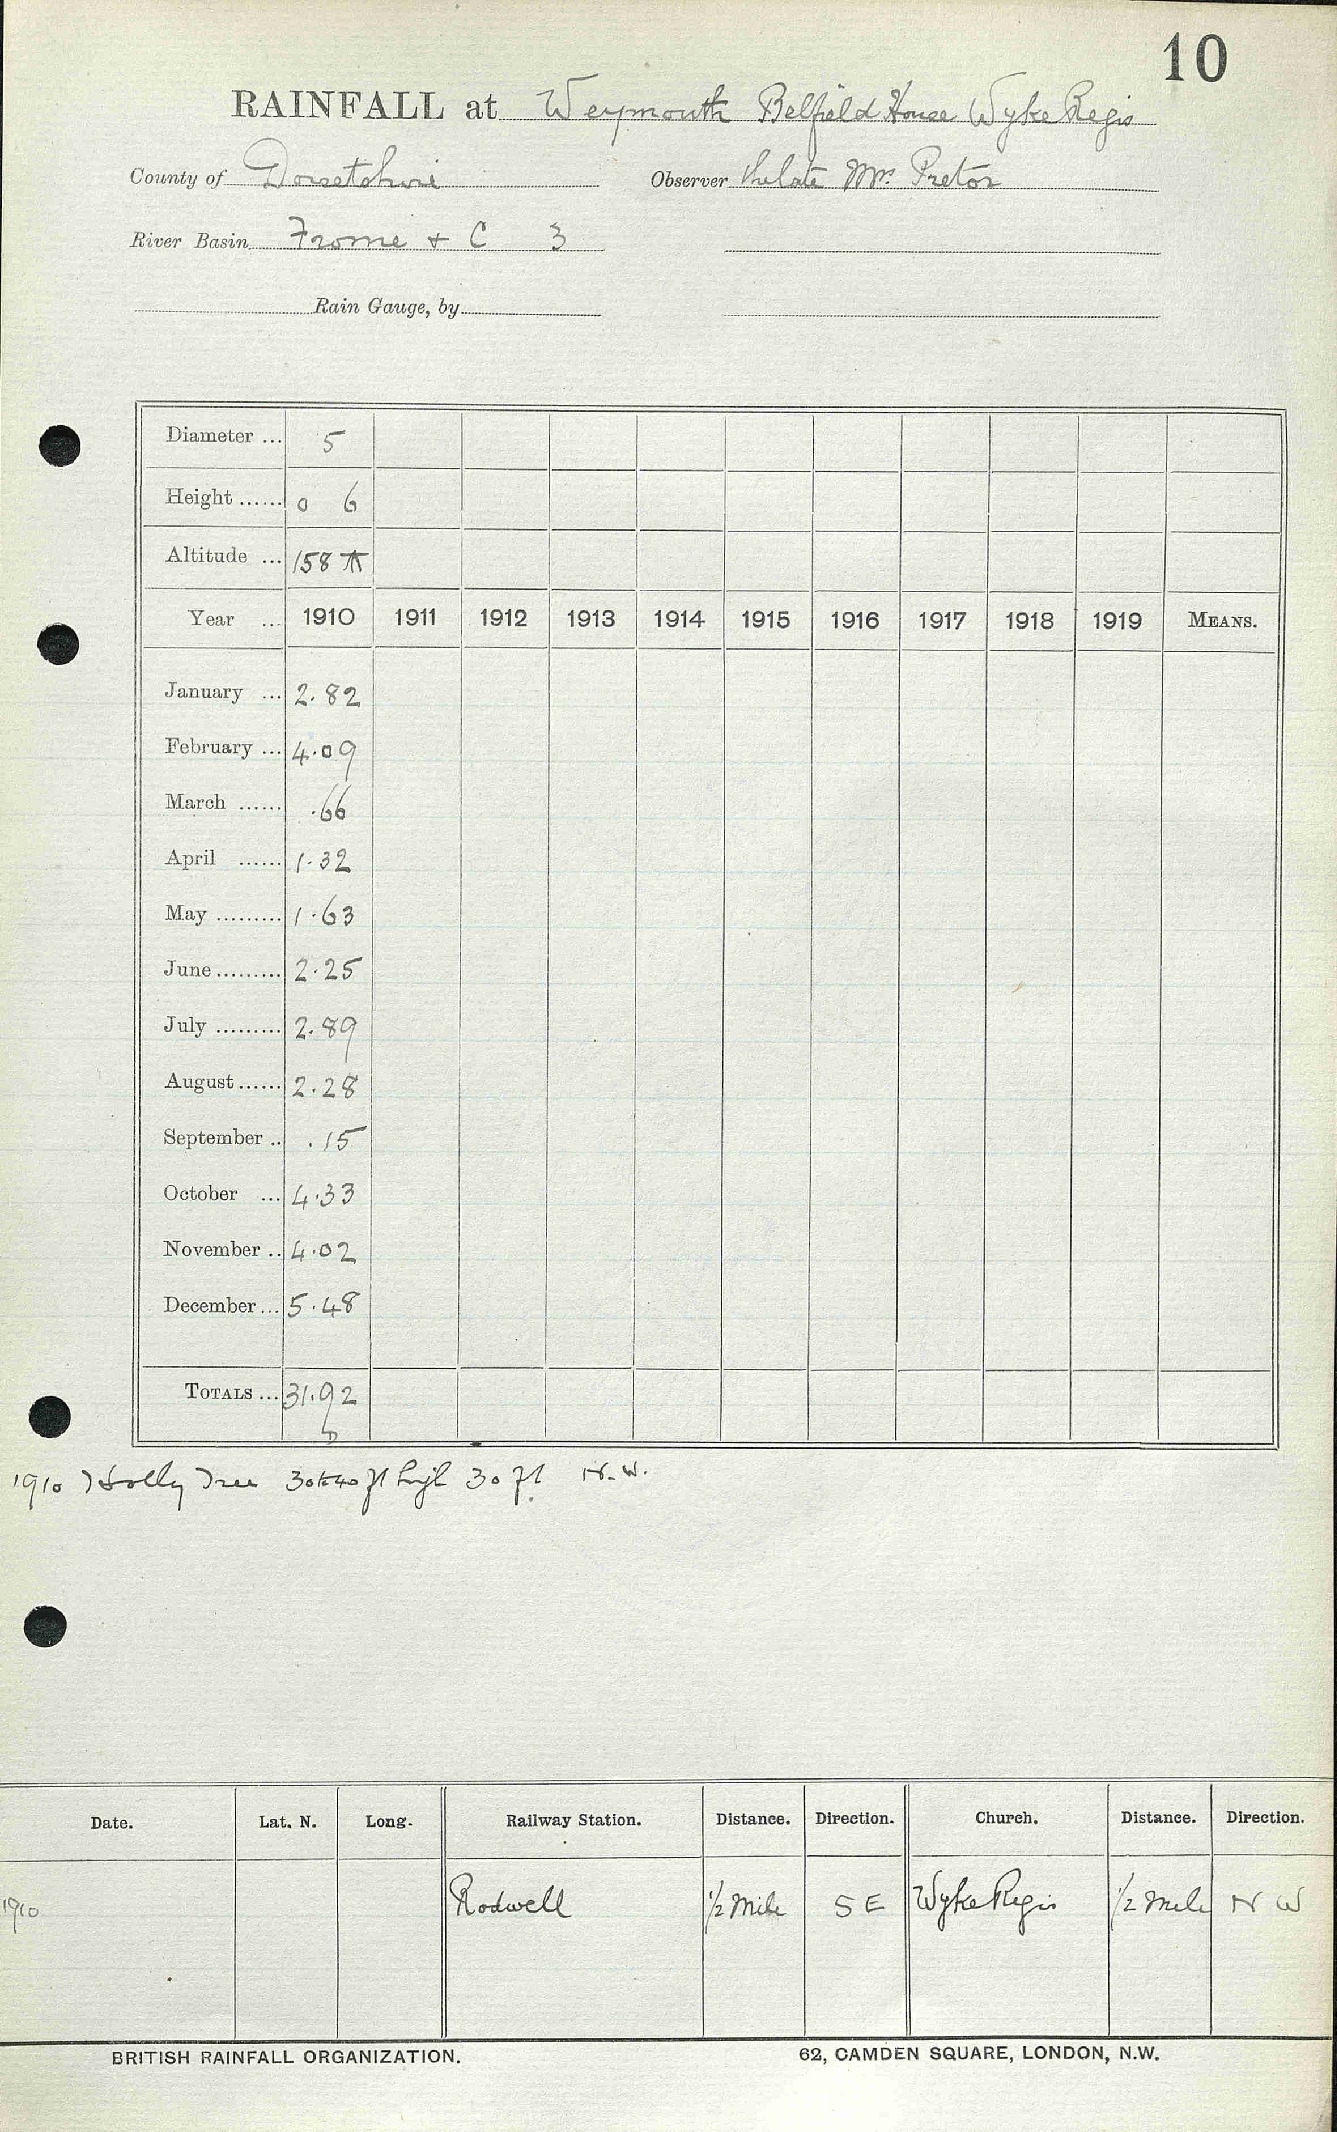 10
RAINFALL at Weymouth Belfield House Wyke Regis
County of Dorsetshire Observer The late Mr. Pretor
River Basin Frome & C 3
Rain Gauge, by
Diameter ... 5
Height ...... 0 6
Altitude ... 158 ft
Year ... 1910 1911 1912 1913 1914 1915 1916 1917 1918 1919 MEANS.
January ... 2.82
February ... 4.09
March ...... .66
April ...... 1.32
May ......... 1.63
June ......... 2.25
July ......... 2.89
August ...... 2.28
September .. .15
October ... 4.33
November .. 4.02
December ... 5.48
TOTALS ... 31.92
1910 Holly Tree 30 to 40 ft high 30 ft N.W.
Date. Lat. N. Long. Railway Station. Distance. Direction. Church. Distance. Direction.
1910 Rodwell 1/2 Mile S E Wyke Regis 1/2 Mile N W
BRITISH RAINFALL ORGANIZATION. 62, CAMDEN SQUARE, LONDON, N.W.